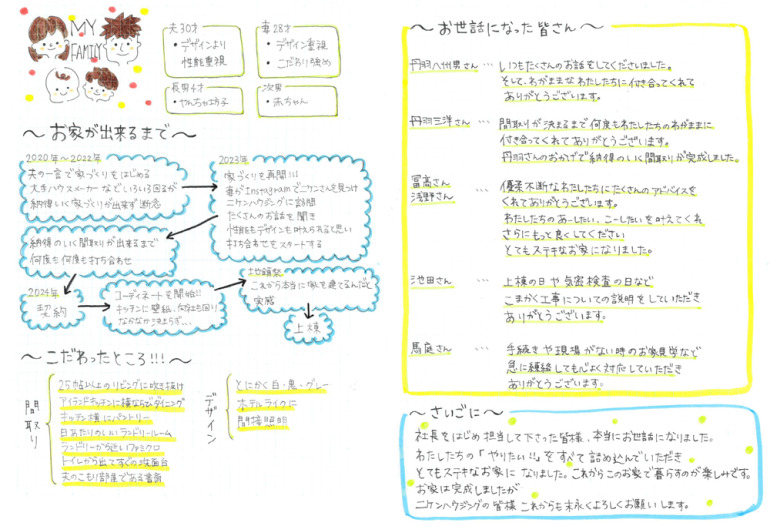 MY
FAMILY
夫30才
• デザインより
性能重視
妻28才
• デザイン重視
• こだわり強め
長男4才
• やんちゃ坊子
次男
• 赤ちゃん
～お家が出来るまで～
2020年～2022年
夫の一言で家づくりをはじめる
大手ハウスメーカーなどいろいろ回るが
納得いく家づくりが出来ず断念
2023年
家づくりを再開!!!
妻がInstagramでニケンさんを見つけ
ニケンハウジングに訪問
たくさんのお話を聞き
性能もデザインも叶えられると思い
打ち合わせをスタートする
納得のいく間取りが出来るまで
何度も何度も打ち合わせ
2024年
契約
コーディネートを開始!!
キッチンに壁紙、何度も回り
なかなか決まらず...
地鎮祭
これから本当に家を建てるんだと
実感
上棟
～こだわったところ!!!～
間取り
25帖以上のリビングに吹き抜け
アイランドキッチンに横ならびダイニング
キッチン横にパントリー
日あたりのいいランドリールーム
ランドリーから近いファミクロ
トイレから出てすぐの洗面台
夫のこもり部屋である書斎
デザイン
とにかく白・黒・グレー
ホテルライクに
間接照明
～お世話になった皆さん～
丹羽八州男さん … いつもたくさんのお話をしてくださいました。
そして、わがままなわたしたちに付き合ってくれて
ありがとうございます。
丹羽三洋さん … 間取りが決まるまで何度もわたしたちのわがままに
付き合ってくれてありがとうございます。
丹羽さんのおかげで納得のいく間取りが完成しました。
冨高さん
浅野さん … 優柔不断なわたしたちにたくさんのアドバイスを
くれてありがとうございます。
わたしたちのあーしたい、こーしたいを叶えてくれ
さらにもっと良くしてください
とてもステキなお家になりました。
池田さん … 上棟の日や気密検査の日など
こまかく工事についての説明をしていただき
ありがとうございます。
馬庭さん … 手続きや現場がない時のお家見学など
急に連絡しても心よく対応していただき
ありがとうございます。
～さいごに～
社長をはじめ担当して下さった皆様、本当にお世話になりました。
わたしたちの「やりたい!!」をすべて詰め込んでいただき
とてもステキなお家になりました。これからこのお家で暮らすのが楽しみです。
お家は完成しましたが
ニケンハウジングの皆様これからも末永くよろしくお願いします。